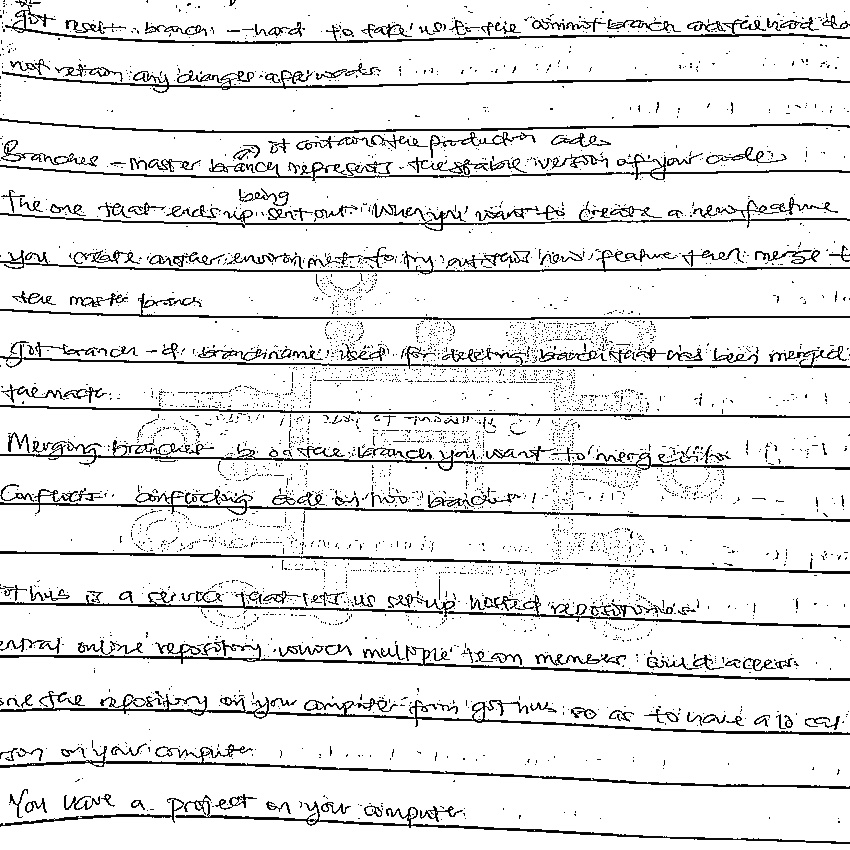 git reset branch --hard to take us to the commit branch and the hard do
not retain any changes afterwards
it contains the production code
Branches - master branch represents the stable version of your code
being
The one that ends up sent out. When you want to create a new feature
you create another environment to try out this new feature then merge
the master branch
git branch -d branchname used for deleting branch that has been merged
the master
Merging branches be on the branch you want to merge into
Conflicts conflicting code on two branches
is a service that lets us set up hosted repositories
online repository which multiple team members could access
the repository on your computer from git hub so as to have a
on your computer
You have a project on your computer